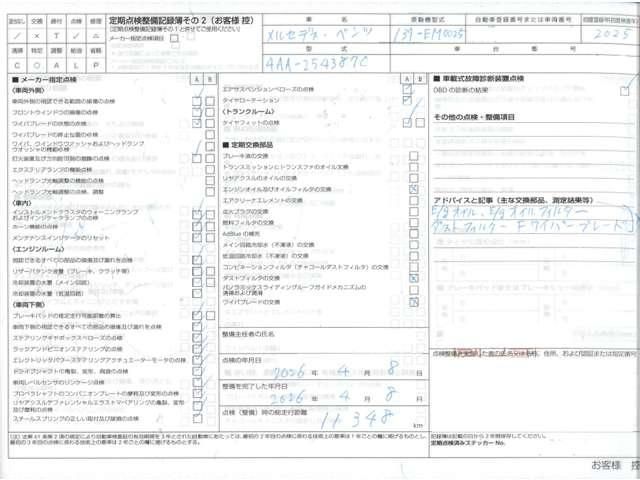 良好 交換 締付 点検 修理
／ × T ✓ △
清掃 特定 調整 給油 省略
C ○ A L P
定期点検整備記録簿その2（お客様 控）
（定期点検整備記録簿その1と併せてご使用ください）
メーカー指定点検項目 □
車 名
メルセデス・ベンツ
原動機型式
139-EM0025
自動車登録番号または車両番号
2025
型 式
4AA-254387C
車 台 番 号
■ メーカー指定点検
（車両外側）
車両外側の確認できる範囲の損傷の点検
フロントウインドウの損傷の点検
ワイパブレードの状態の点検
ワイパブレードの停止位置の点検
ワイパ、ウインドウウォッシャおよびヘッドランプ
ウォッシャの機能の点検
灯火装置及び方向指示器の損傷の点検
エクステリアランプの機能点検
ヘッドランプ光軸調整の機能の点検
ヘッドランプ光軸調整の点検、調整
（車内）
インストルメントクラスタのウォーニングランプ
およびインジケータランプの点検
ホーン機能の点検
メンテナンスインジケータのリセット
（エンジンルーム）
確認できるすべての部品の損傷及び漏れを点検
リザーバタンク液量（ブレーキ、クラッチ等）
冷却装置の水量（メイン回路）
冷却装置の水量（低温回路）
（車両下側）
ブレーキパッドの推定走行可能距離の算出
車両下側の確認できるすべての部品の損傷及び漏れを点検
ステアリングギヤボックスベローズの点検
ラックアンドピニオンステアリングの点検
エレクトリックパワーステアリングアクチュエーターモータの点検
ドライブシャフトの亀裂、変形、腐食の点検
車両レベルセンサのリンケージ点検
プロペラシャフトのコンパニオンプレートの摩耗及び変形の点検
リヤアクスルデファレンシャルエラストマベアリングの亀裂、変形
及び摩耗の点検
スチールスプリングの正しい取付及び破損の点検
A B
エアサスペンションベローズの点検
タイヤローテーション
（トランクルーム）
タイヤフィットの点検
■ 定期交換部品
ブレーキ液の交換
トランスミッションとトランスファのオイル交換
リヤアクスルのオイルの交換
エンジンオイル及びオイルフィルタの交換
エアクリーナエレメントの交換
点火プラグの交換
燃料フィルタの交換
AdBlueの補充
メイン回路冷却水（不凍液）の交換
低温回路冷却水（不凍液）の交換
コンビネーションフィルタ（チャコールダストフィルタ）の交換
ダストフィルタの交換
パノラミックスライディングルーフガイドメカニズムの
清掃および潤滑
ワイパブレードの交換
整備主任者の氏名
点検の年月日
2026 年 4 月 8 日
整備を完了した年月日
2026 年 4 月 8 日
点検（整備）時の総走行距離
11,348 km
■ 車載式故障診断装置点検
OBDの診断の結果
その他の点検・整備項目
アドバイスと記事（主な交換部品、測定結果等）
E/gオイル、E/gオイルフィルター
ダストフィルター F ワイパーブレード
記録簿は記載の日から2年間保存してください。
定期点検済みステッカー No.
お客様 控